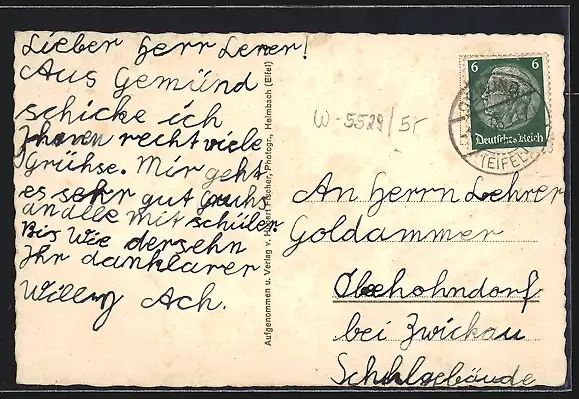 Lieber herr Lerer!
Aus Gemünd
schicke ich
Jhnen recht viele
Grühse. Mir geht
es sehr gut Gruhs
an alle mit schüler.
Bis Wie dersehn
Jhr danklarer
Willy Ach.
Aufgenommen u. Verlag v. Hubert Fischer, Photogr., Heimbach (Eifel)
W-5529/5r
6 6
Deutsches Reich
(EIFEL)
An Herrn Lehrer
Goldammer
Oberhohndorf
bei Zwickau
Schulgebäude